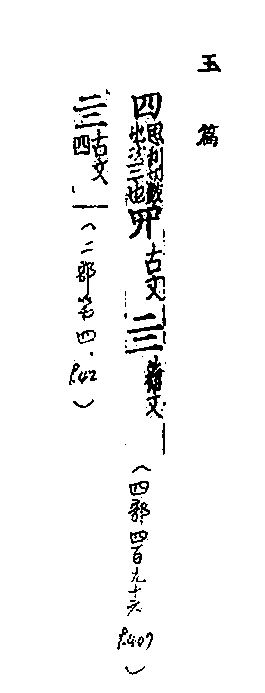 玉篇
四思利切數也次三也 古文亖籀文(四部四百九十六 P.407)
亖古文四(二部第四.P.42)